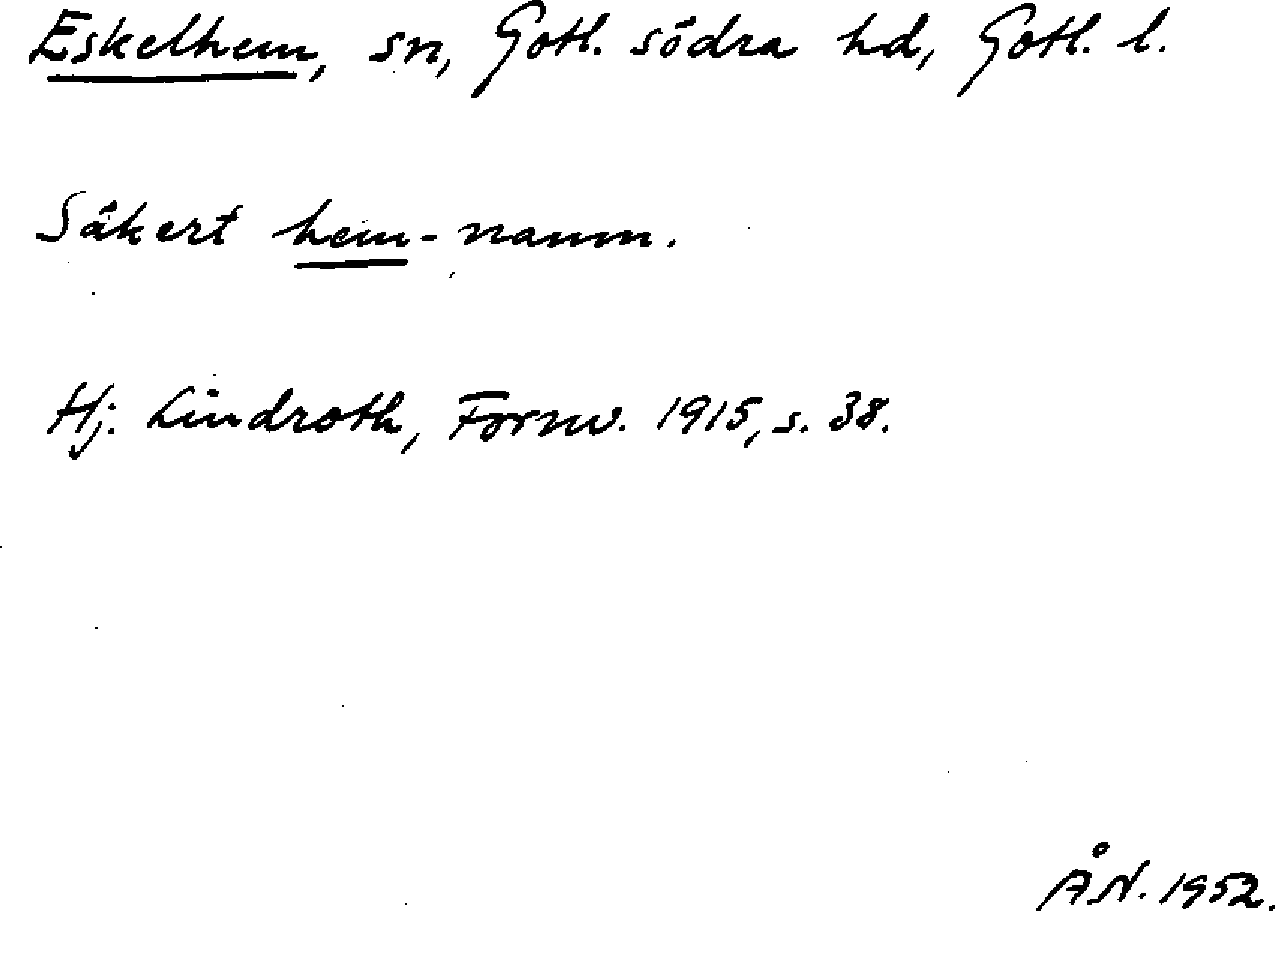 Eskelhem, sn, Gotl. södra hd, Gotl. l.
Säkert hem-namn.
Hj. Lindroth, Fornv. 1915, s. 38.
ÅN. 1952.